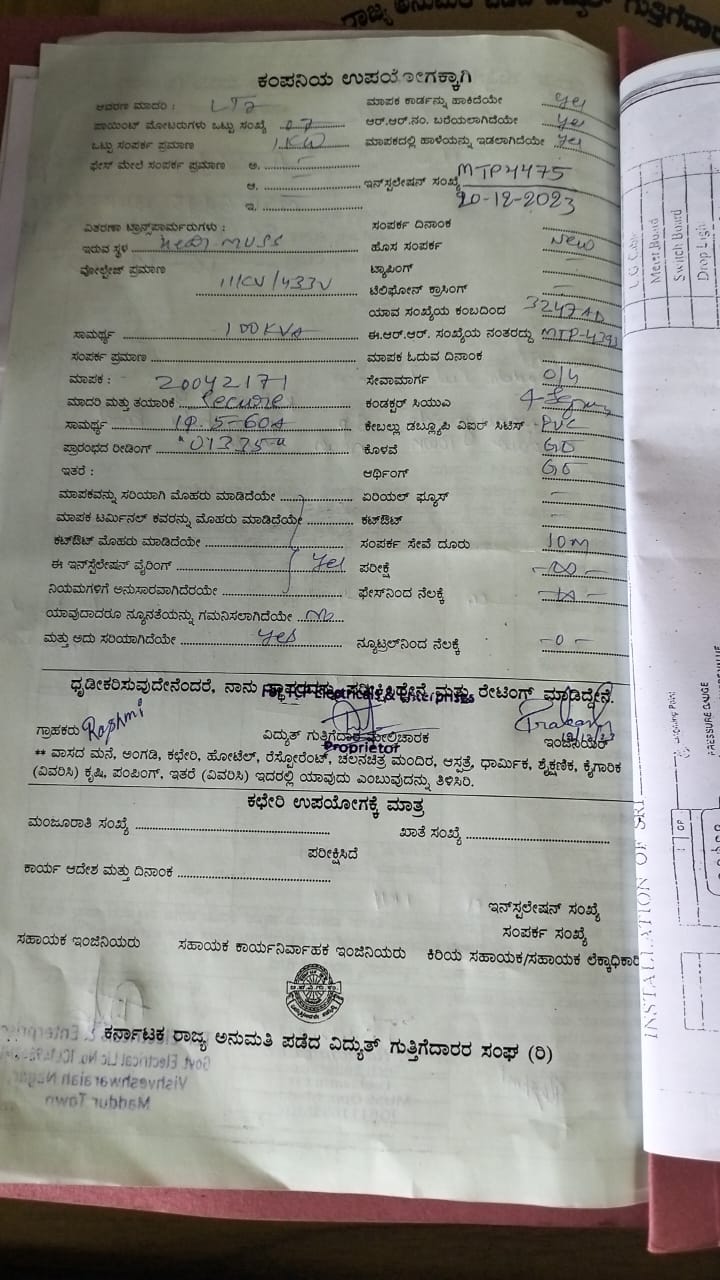 ರಾಜ್ಯ ಅನುಮತಿ ಪಡೆದ ವಿದ್ಯುತ್ ಗುತ್ತಿಗೆದಾರ
ಕಂಪನಿಯ ಉಪಯೋಗಕ್ಕಾಗಿ
ಆವರಣ ಮಾದರಿ : LT2 ಮಾಪಕ ಕಾರ್ಡನ್ನು ಹಾಕಿದೆಯೇ yes
ಪಾಯಿಂಟ್ ಮೋಟರುಗಳು ಒಟ್ಟು ಸಂಖ್ಯೆ 07 ಆರ್.ಆರ್.ನಂ. ಬರೆಯಲಾಗಿದೆಯೇ yes
ಒಟ್ಟು ಸಂಪರ್ಕ ಪ್ರಮಾಣ 1KW ಮಾಪಕದಲ್ಲಿ ಹಾಳೆಯನ್ನು ಇಡಲಾಗಿದೆಯೇ yes
ಫೇಸ್ ಮೇಲೆ ಸಂಪರ್ಕ ಪ್ರಮಾಣ ಅ.
ಆ. ಇನ್‌ಸ್ಟಲೇಷನ್ ಸಂಖ್ಯೆ MTP4475
ಇ. 20-12-2023
ವಿತರಣಾ ಟ್ರಾನ್ಸ್‌ಪಾರ್ಮರುಗಳು : ಸಂಪರ್ಕ ದಿನಾಂಕ
ಇರುವ ಸ್ಥಳ near MUSS ಹೊಸ ಸಂಪರ್ಕ New
ವೋಲ್ಟೇಜ್ ಪ್ರಮಾಣ 11KV/433V ಟ್ಯಾಪಿಂಗ್ –
ಟೆಲಿಫೋನ್ ಕ್ರಾಸಿಂಗ್ –
ಯಾವ ಸಂಖ್ಯೆಯ ಕಂಬದಿಂದ 3247AD
ಸಾಮರ್ಥ್ಯ 100KVA ಈ.ಆರ್.ಆರ್. ಸಂಖ್ಯೆಯ ನಂತರದ್ದು
ಸಂಪರ್ಕ ಪ್ರಮಾಣ ಮಾಪಕ ಓದುವ ದಿನಾಂಕ
ಮಾಪಕ : 20042171 ಸೇವಾಮಾರ್ಗ O/H
ಮಾದರಿ ಮತ್ತು ತಯಾರಿಕೆ Secure ಕಂಡಕ್ಟರ್ ಸಿಯುಎ
ಸಾಮರ್ಥ್ಯ 1φ.5-60A ಕೇಬಲ್ಲು ಡಬ್ಲ್ಯೂಪಿ ವಿಐರ್ ಸಿಟಿಸ್ PVC
ಪ್ರಾರಂಭದ ರೀಡಿಂಗ್ "01335" ಕೊಳವೆ GD
ಇತರೆ : ಆರ್ಥಿಂಗ್
ಮಾಪಕವನ್ನು ಸರಿಯಾಗಿ ಮೊಹರು ಮಾಡಿದೆಯೇ ಏರಿಯಲ್ ಫ್ಯೂಸ್ –
ಮಾಪಕ ಟರ್ಮಿನಲ್ ಕವರನ್ನು ಮೊಹರು ಮಾಡಿದೆಯೇ ಕಟ್‌ಔಟ್ –
ಕಟ್‌ಔಟ್ ಮೊಹರು ಮಾಡಿದೆಯೇ ಸಂಪರ್ಕ ಸೇವೆ ದೂರು 10m
ಈ ಇನ್‌ಸ್ಟಲೇಷನ್ ವೈರಿಂಗ್ yes ಪರೀಕ್ಷೆ -∞-
ನಿಯಮಗಳಿಗೆ ಅನುಸಾರವಾಗಿದೆರಯೇ ಫೇಸ್‌ನಿಂದ ನೆಲಕ್ಕೆ -∞-
ಯಾವುದಾದರೂ ನ್ಯೂನತೆಯನ್ನು ಗಮನಿಸಲಾಗಿದೆಯೇ No
ಮತ್ತು ಅದು ಸರಿಯಾಗಿದೆಯೇ yes ನ್ಯೂಟ್ರಲ್‌ನಿಂದ ನೆಲಕ್ಕೆ -0-
ಧೃಡೀಕರಿಸುವುದೇನೆಂದರೆ, ನಾನು ಸ್ಥಾವರವನ್ನು ಪರೀಕ್ಷಿಸಿದ್ದೇನೆ ಮತ್ತು ರೇಟಿಂಗ್ ಮಾಡಿದ್ದೇನೆ.
Electricals & Enterprises
ಗ್ರಾಹಕರು Rashmi ವಿದ್ಯುತ್ ಗುತ್ತಿಗೆದಾರ ಮೇಲಿಚಾರಕ ಇಂಜಿನಿಯರ್
Proprietor
** ವಾಸದ ಮನೆ, ಅಂಗಡಿ, ಕಛೇರಿ, ಹೋಟೆಲ್, ರೆಸ್ಟೋರೆಂಟ್, ಚಲನಚಿತ್ರ ಮಂದಿರ, ಆಸ್ಪತ್ರೆ, ಧಾರ್ಮಿಕ, ಶೈಕ್ಷಣಿಕ, ಕೈಗಾರಿಕ
(ವಿವರಿಸಿ) ಕೃಷಿ, ಪಂಪಿಂಗ್, ಇತರೆ (ವಿವರಿಸಿ) ಇದರಲ್ಲಿ ಯಾವುದು ಎಂಬುವುದನ್ನು ತಿಳಿಸಿರಿ.
ಕಛೇರಿ ಉಪಯೋಗಕ್ಕೆ ಮಾತ್ರ
ಮಂಜೂರಾತಿ ಸಂಖ್ಯೆ ಖಾತೆ ಸಂಖ್ಯೆ
ಪರೀಕ್ಷಿಸಿದೆ
ಕಾರ್ಯ ಆದೇಶ ಮತ್ತು ದಿನಾಂಕ
ಇನ್‌ಸ್ಪಲೇಷನ್ ಸಂಖ್ಯೆ
ಸಂಪರ್ಕ ಸಂಖ್ಯೆ
ಸಹಾಯಕ ಇಂಜಿನಿಯರು ಸಹಾಯಕ ಕಾರ್ಯನಿರ್ವಾಹಕ ಇಂಜಿನಿಯರು ಕಿರಿಯ ಸಹಾಯಕ/ಸಹಾಯಕ ಲೆಕ್ಕಾಧಿಕಾರಿ
ಕರ್ನಾಟಕ ರಾಜ್ಯ ಅನುಮತಿ ಪಡೆದ ವಿದ್ಯುತ್ ಗುತ್ತಿಗೆದಾರರ ಸಂಘ (ರಿ)
Govt Electrical Lic No.
Vishveshwaraiah Nagar
Maddur Town
Meter Board
Switch Board
Drop Ligh
PRESSURE GAUGE
INSTALLATION OF SRI